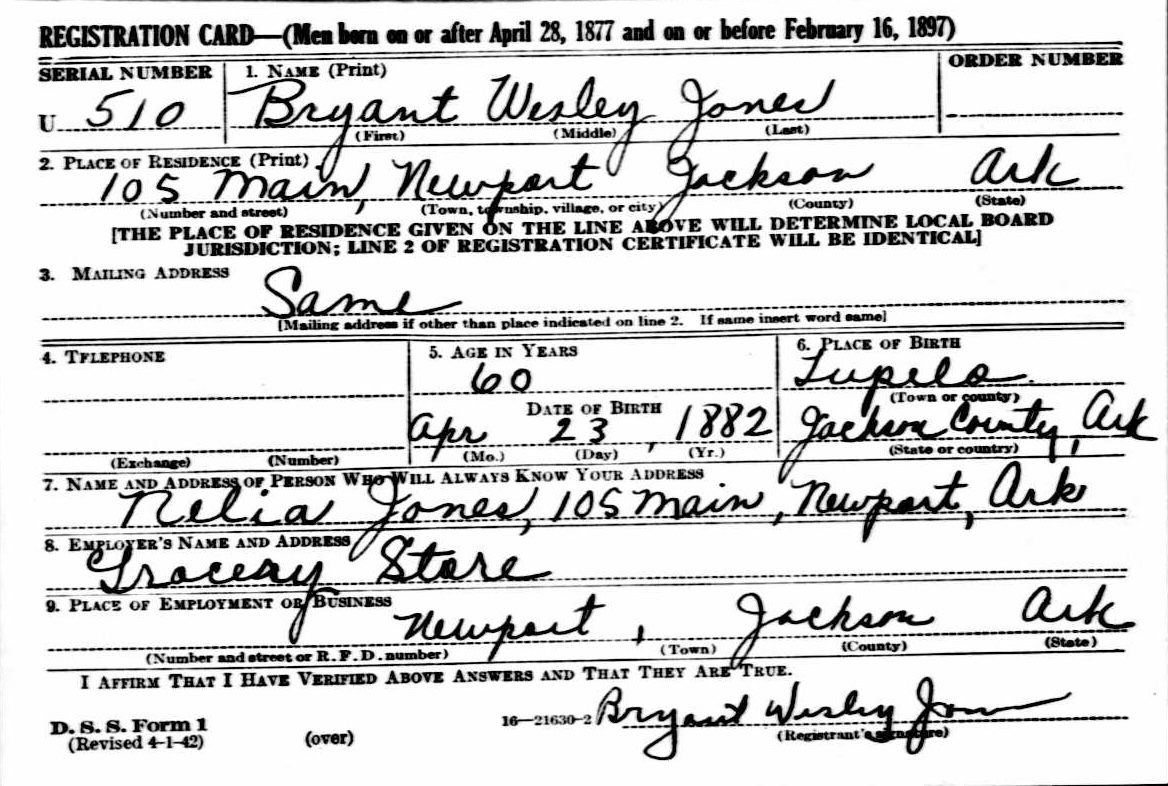 REGISTRATION CARD—(Men born on or after April 28, 1877 and on or before February 16, 1897)
SERIAL NUMBER 1. NAME (Print) ORDER NUMBER
U 510 Bryant Wesley Jones
(First) (Middle) (Last)
2. PLACE OF RESIDENCE (Print)
105 Main, Newport Jackson Ark
(Number and street) (Town, township, village, or city) (County) (State)
[THE PLACE OF RESIDENCE GIVEN ON THE LINE ABOVE WILL DETERMINE LOCAL BOARD
JURISDICTION; LINE 2 OF REGISTRATION CERTIFICATE WILL BE IDENTICAL]
3. MAILING ADDRESS
Same
[Mailing address if other than place indicated on line 2. If same insert word same]
4. TELEPHONE 5. AGE IN YEARS 6. PLACE OF BIRTH
60 Tupelo
DATE OF BIRTH (Town or county)
Apr 23, 1882 Jackson County, Ark
(Exchange) (Number) (Mo.) (Day) (Yr.) (State or country)
7. NAME AND ADDRESS OF PERSON WHO WILL ALWAYS KNOW YOUR ADDRESS
Nelia Jones, 105 Main, Newport, Ark
8. EMPLOYER'S NAME AND ADDRESS
Grocery Store
9. PLACE OF EMPLOYMENT OR BUSINESS
Newport, Jackson Ark
(Number and street or R. F. D. number) (Town) (County) (State)
I AFFIRM THAT I HAVE VERIFIED ABOVE ANSWERS AND THAT THEY ARE TRUE.
D. S. S. Form 1 16—21630-2 Bryant Wesley Jones
(Revised 4-1-42) (over) (Registrant's signature)